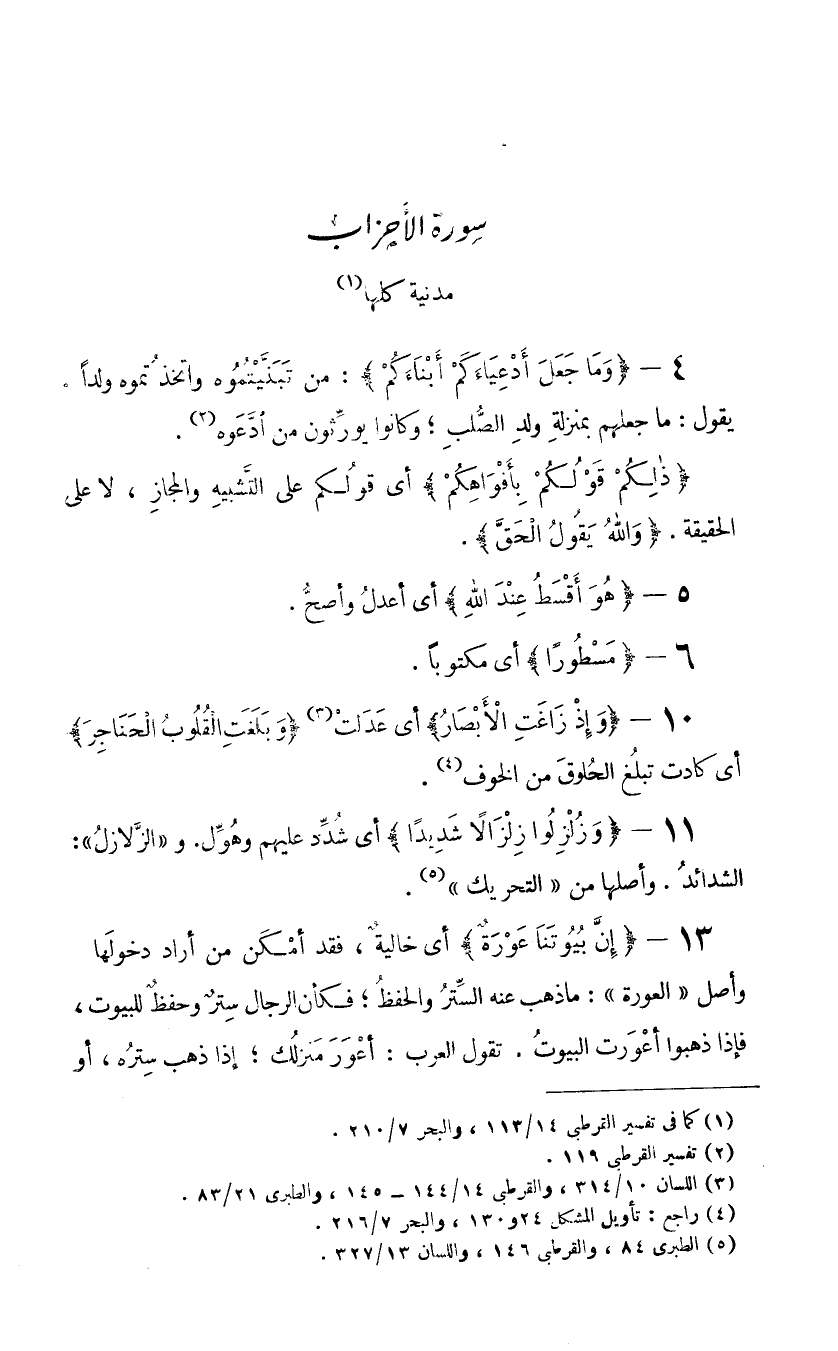 سورة الأحزاب
مدنية كلها(١)
٤ – ﴿وَمَا جَعَلَ أَدْعِيَاءَكُمْ أَبْنَاءَكُمْ﴾ : من تَبَنَّيْتُمُوه واتخذتموه ولداً .
يقول : ما جعلهم بمنزلةِ ولدِ الصُّلبِ ؛ وكانوا يورِّثون من ٱدَّعَوه(٢) .
﴿ذٰلِكُمْ قَوْلُكُمْ بِأَفْوَاهِكُمْ﴾ أى قولُكم على التَّشبيهِ والمجازِ ، لا على
الحقيقة . ﴿وَاللهُ يَقُولُ الْحَقَّ﴾ .
٥ – ﴿هُوَ أَقْسَطُ عِنْدَ اللهِ﴾ أى أعدلُ وأصحُّ .
٦ – ﴿مَسْطُورًا﴾ أى مكتوباً .
١٠ – ﴿وَإِذْ زَاغَتِ الْأَبْصَارُ﴾ أى عَدَلتْ(٣) ﴿وَبَلَغَتِ الْقُلُوبُ الْحَنَاجِرَ﴾
أى كادت تبلُغ الحُلوقَ من الخوف(٤) .
١١ – ﴿وَزُلْزِلُوا زِلْزَالًا شَدِيدًا﴾ أى شُدِّد عليهم وهُوِّل. و «الزَّلازلُ»:
الشدائدُ . وأصلها من « التحريك »(٥) .
١٣ – ﴿إِنَّ بُيُوتَنَا عَوْرَةٌ﴾ أى خاليةٌ ، فقد أمْكَن من أراد دخولَها
وأصل « العورة » : ماذهب عنه السِّترُ والحفظُ ؛ فكأن الرجال سِترٌ وحفظٌ للبيوت ،
فإذا ذهبوا أعْوَرت البيوتُ . تقول العرب : أعْوَرَ مَنزلُك ؛ إذا ذهب سِترُه ، أو
(١) كما فى تفسير القرطبى ١١٣/١٤ ، والبحر ٢١٠/٧ .
(٢) تفسير القرطبى ١١٩ .
(٣) اللسان ٣١٤/١٠ ، والقرطبى ١٤٤/١٤ – ١٤٥ ، والطبرى ٨٣/٢١ .
(٤) راجع : تأويل المشكل ٢٤و١٣٠ ، والبحر ٢١٦/٧ .
(٥) الطبرى ٨٤ ، والقرطبى ١٤٦ ، واللسان ٣٢٧/١٣ .